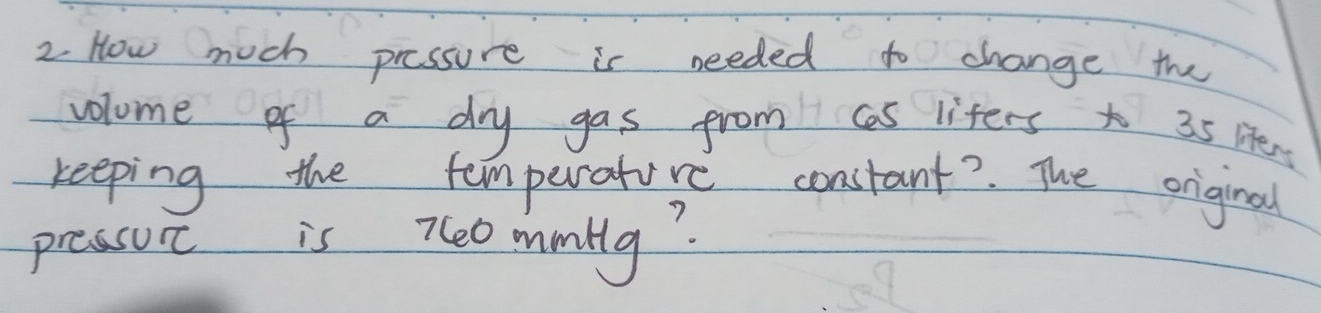 2. How much pressure is needed to change the
volume of a dry gas from 65 liters to 35 liters
keeping the temperature constant?. The original
pressure is 760 mmHg?.